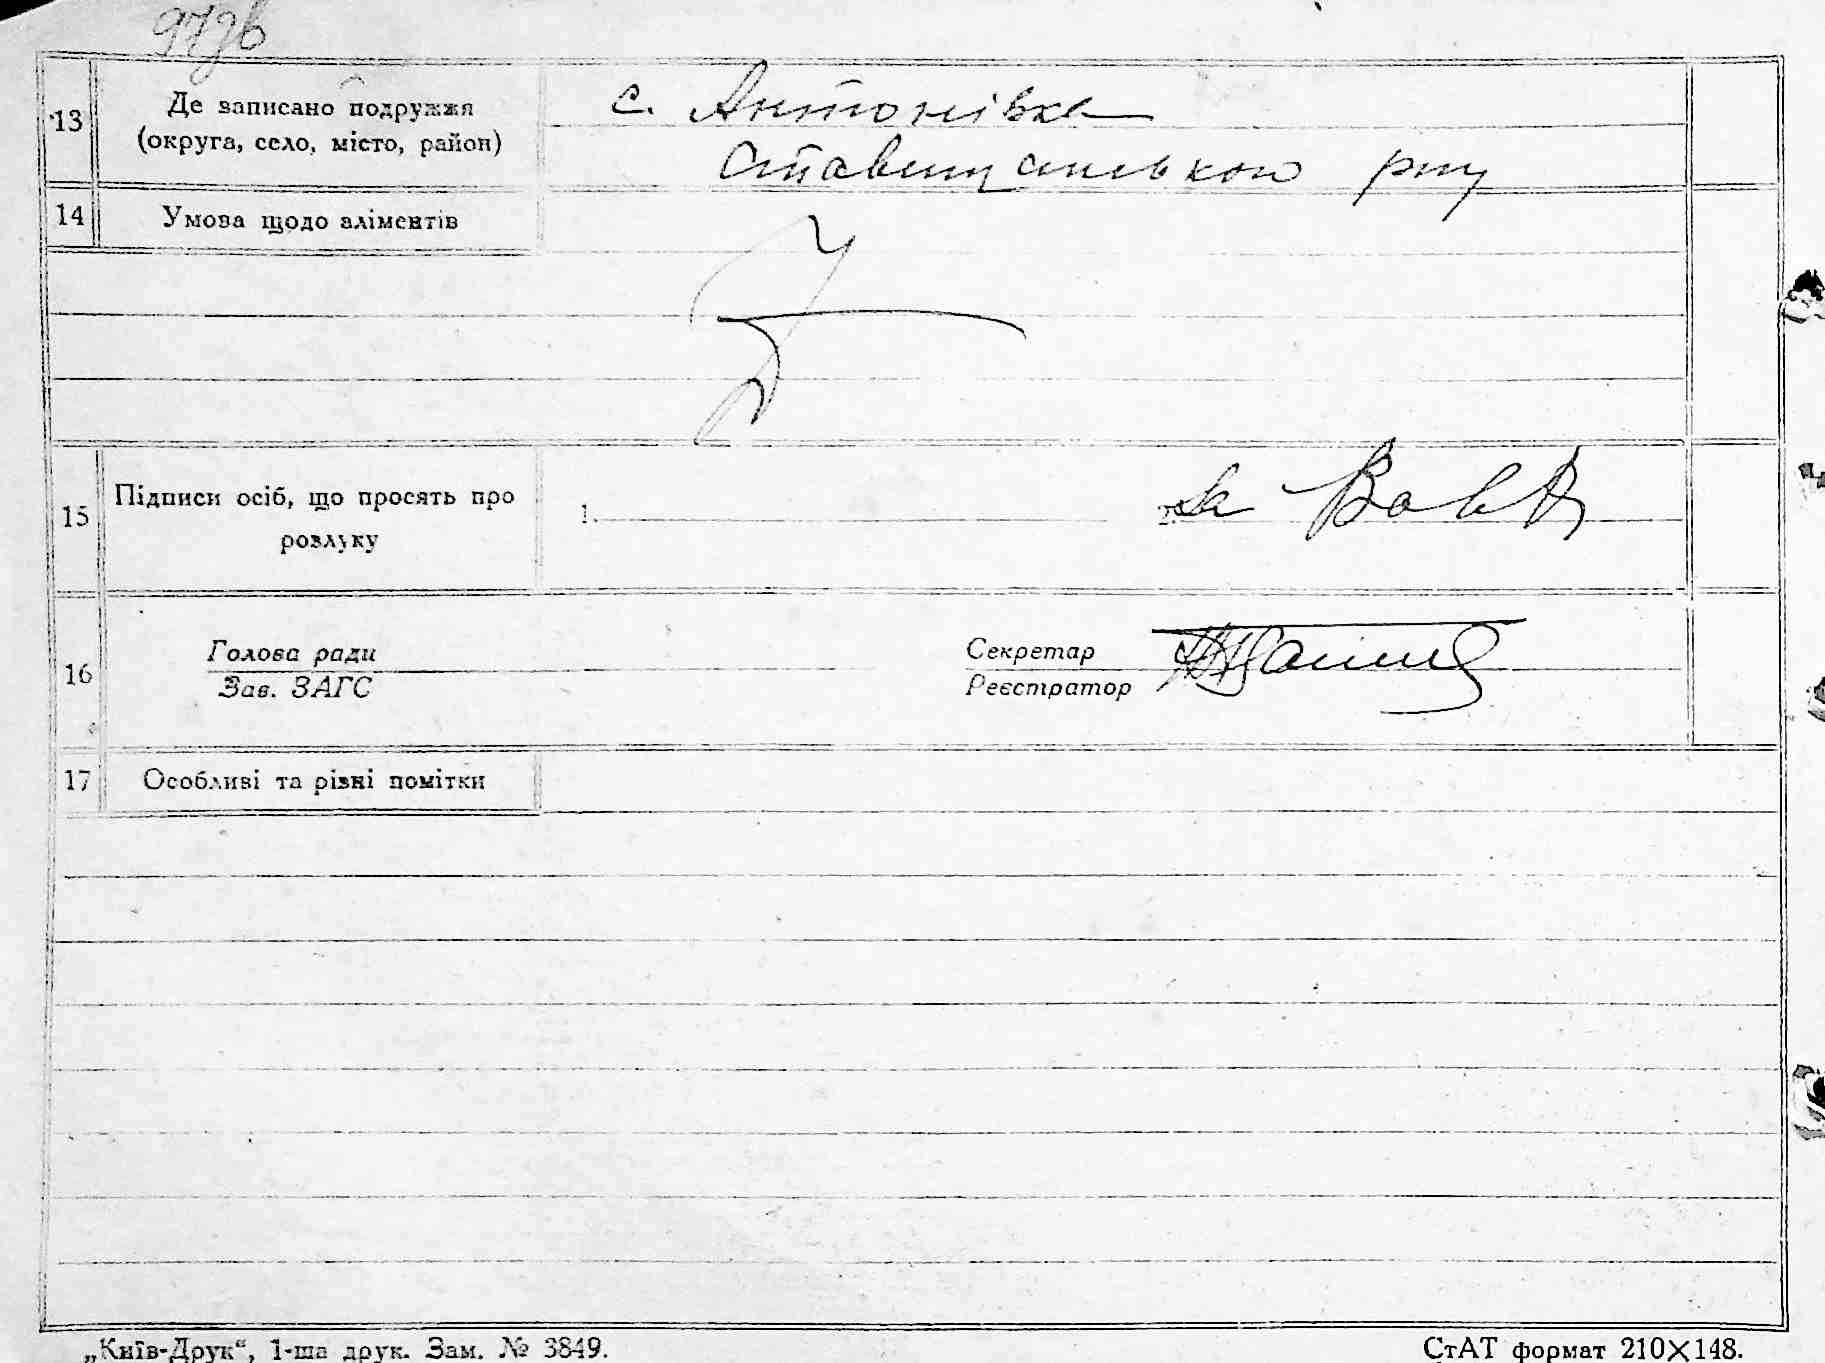 97зв
13 Де записано подружжя
(округа, село, місто, район)
с. Антонівка
Ставищанською рпу
14 Умова щодо аліментів
15 Підписи осіб, що просять про
розлуку
1. 2. За Вовк
16 Голова ради
Зав. ЗАГС
Секретар
Реєстратор
17 Особливі та різні помітки
„Київ-Друк“, 1-ша друк. Зам. № 3849. СтАТ формат 210×148.